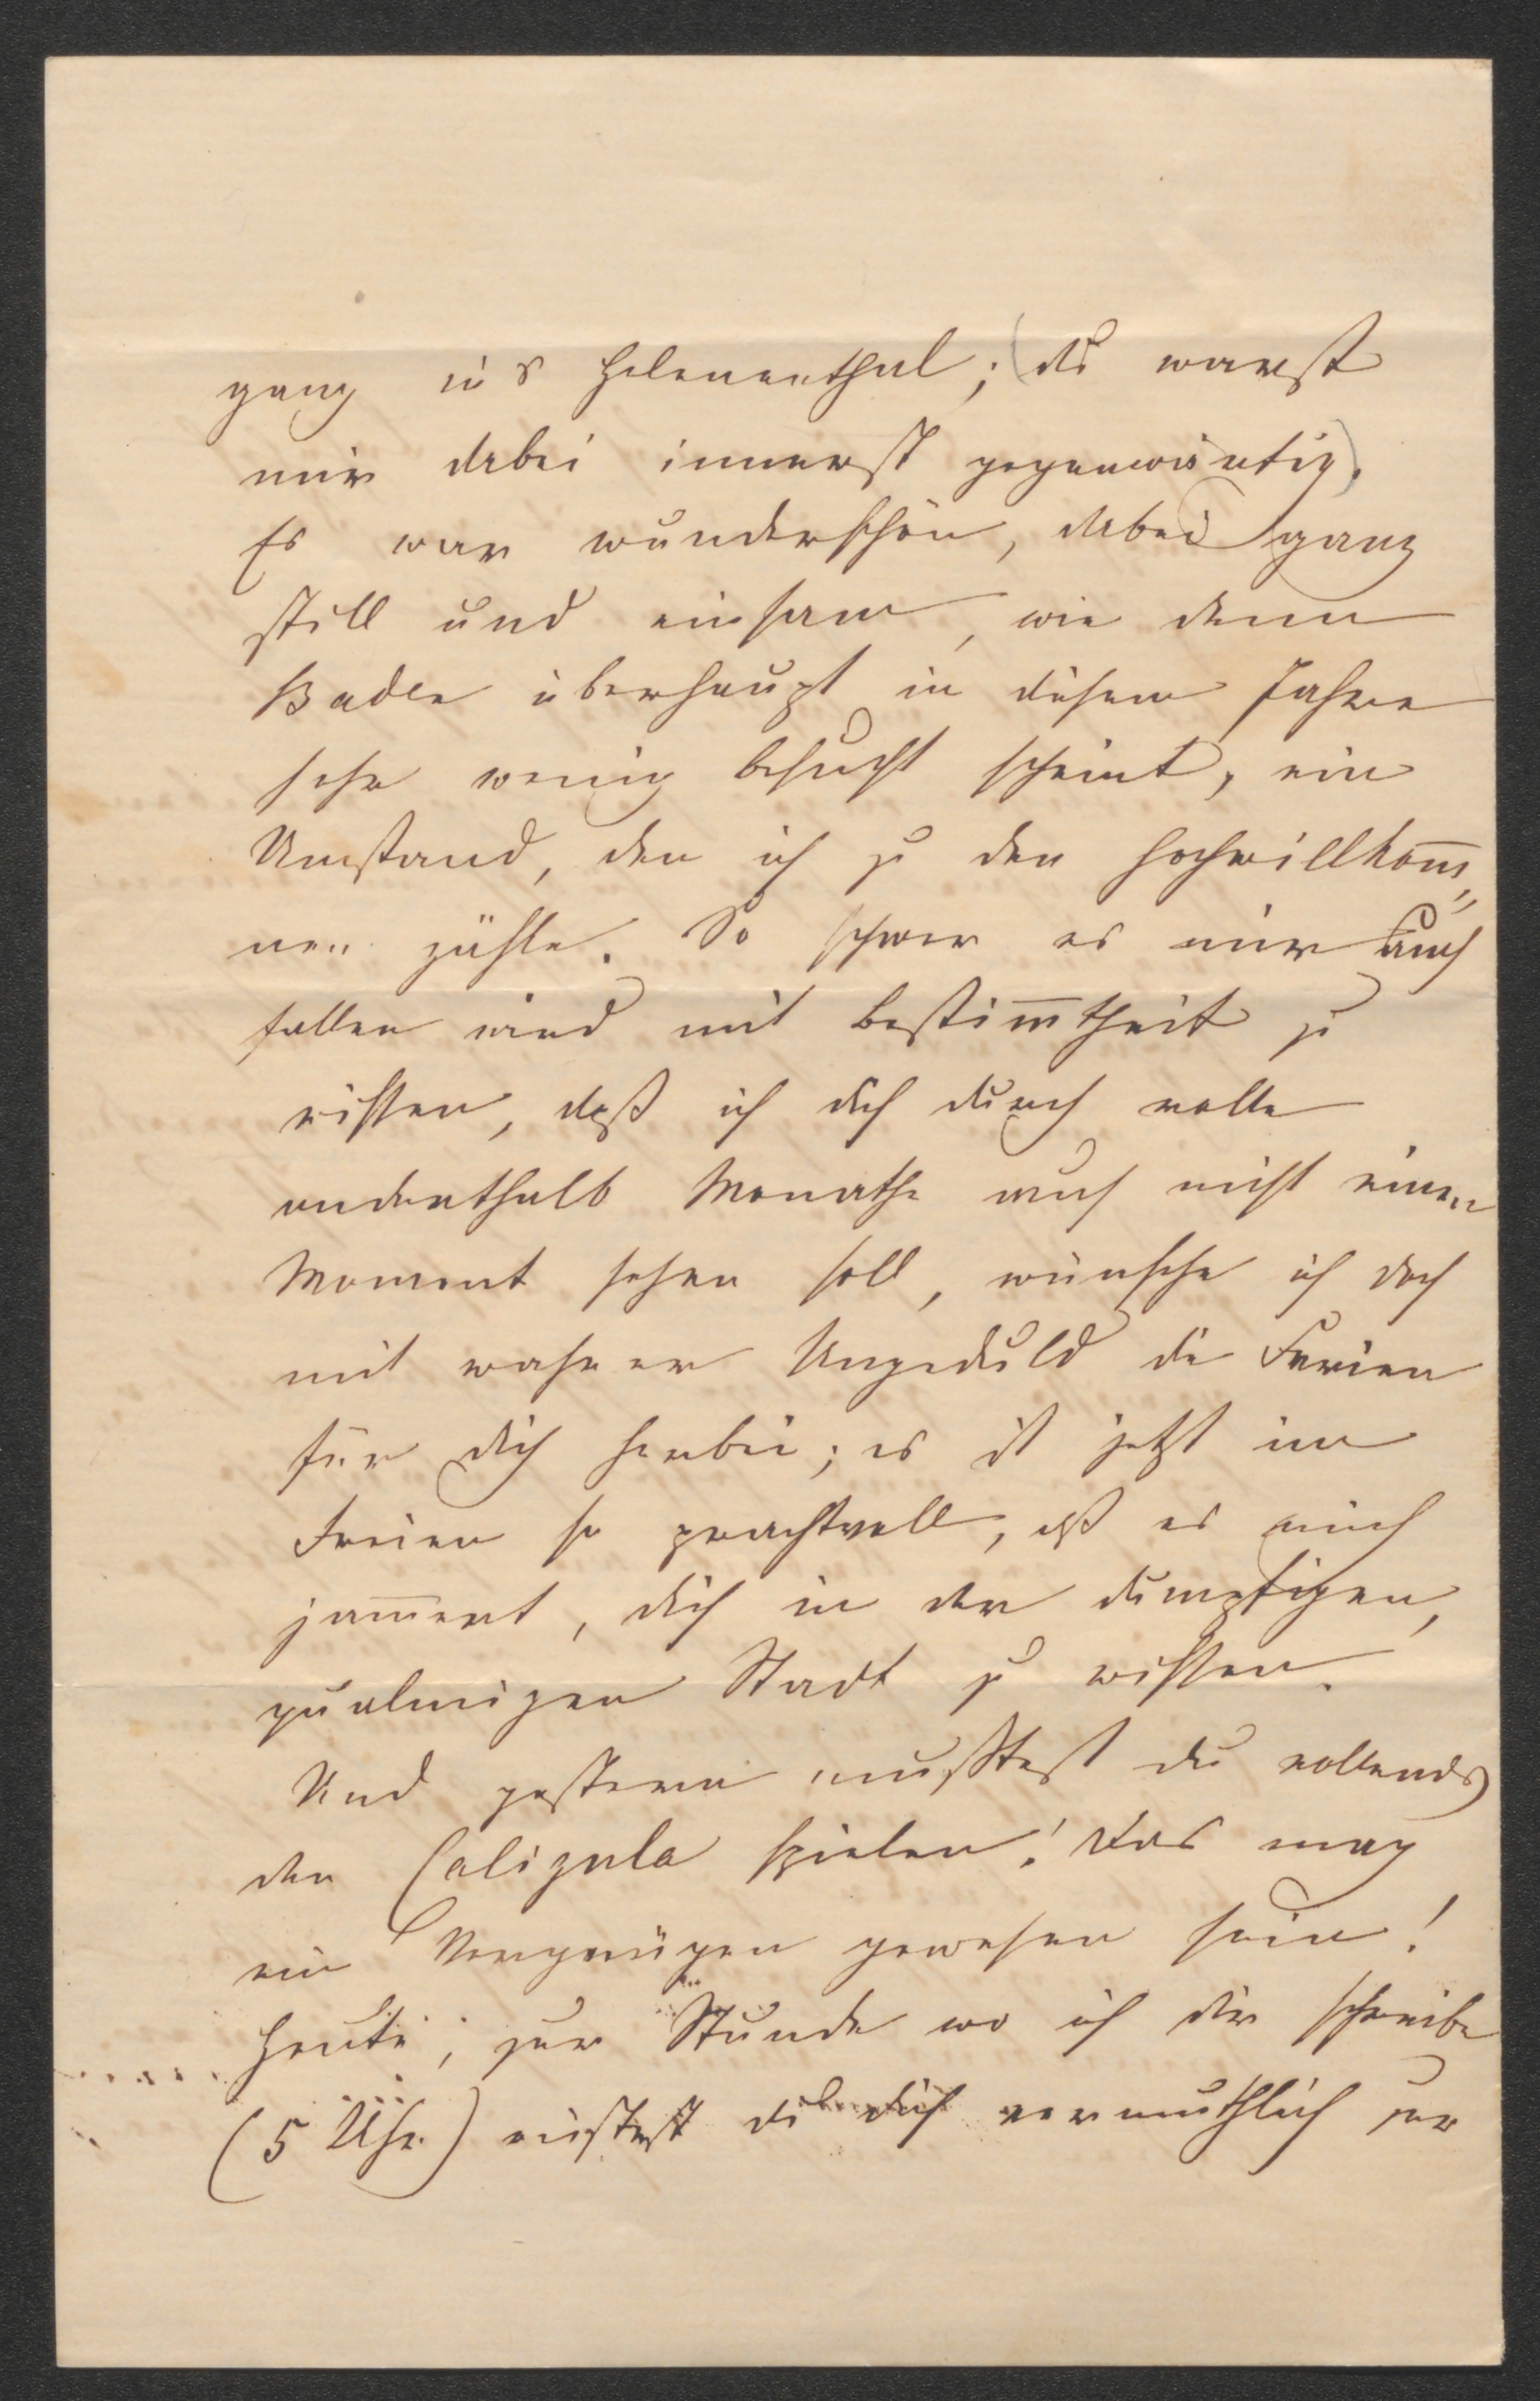 gang in's Helenenthal; (du warst
mir dabei innerst gegenwärtig).
Es war wunderschön, dabei ganz
still und einsam, wie denn
Baden überhaupt in diesem Jahre
sehr wenig besucht scheint, ein
Umstand, den ich zu den hochwillkom̅„
nen zähle. So schwer es mir auch
fallen wird mit Bestim̅theit zu
wissen, daß ich dich durch volle
anderthalb Monathe auch nicht einen
Moment sehen soll, wünsche ich doch
mit wahrer Ungeduld die Ferien
für dich herbei; es ist jetzt im
Freien so prachtvoll, daß es mich
jam̅ert, dich in der dumpfigen,
qualmigen Stadt zu wissen.
Und gestern mußtest du vollends
den Caligula spielen! Das mag
ein Vergnügen gewesen sein!
Heute, zur Stunde wo ich dir schreibe
(5 Uhr) rüstest du dich vermuthlich zur